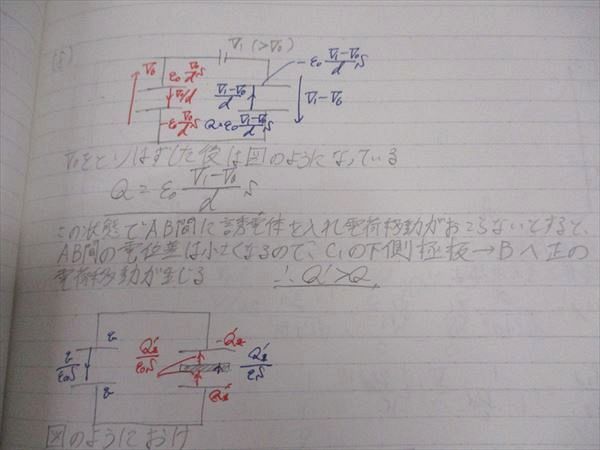 (5)
V₁ (>V₀)
V₀
ε₀ V₀/d S
V₀/d
-ε₀ V₀/d S
(V₁-V₀)/d
Q=ε₀ (V₁-V₀)/d S
-ε₀ (V₁-V₀)/d S
V₁-V₀
V₀をとりはずした後は図のようになっている
Q = ε₀ (V₁-V₀)/d S
この状態でAB間に誘電体を入れ電荷移動がおこらないとすると、
AB間の電位差は小さくなるので、C₁の下側極板→Bへ正の
電荷移動が生じる ∴ Q'>Q
図のようにおけ